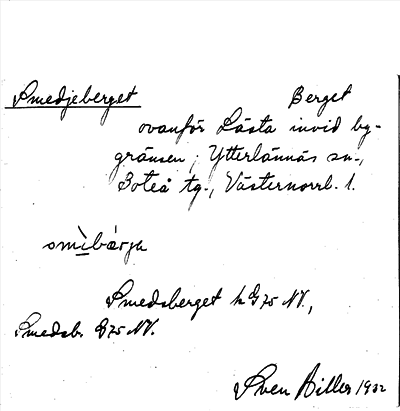 Smedjeberget Berget
ovanför Lästa invid by-
gränsen, Ytterlännäs sn.,
Boteå tg., Västernorrl. l.
smìbærja
Smedsberget k G 75 NV.,
Smedsb. G 75 NV.
Sven Hiller 1932